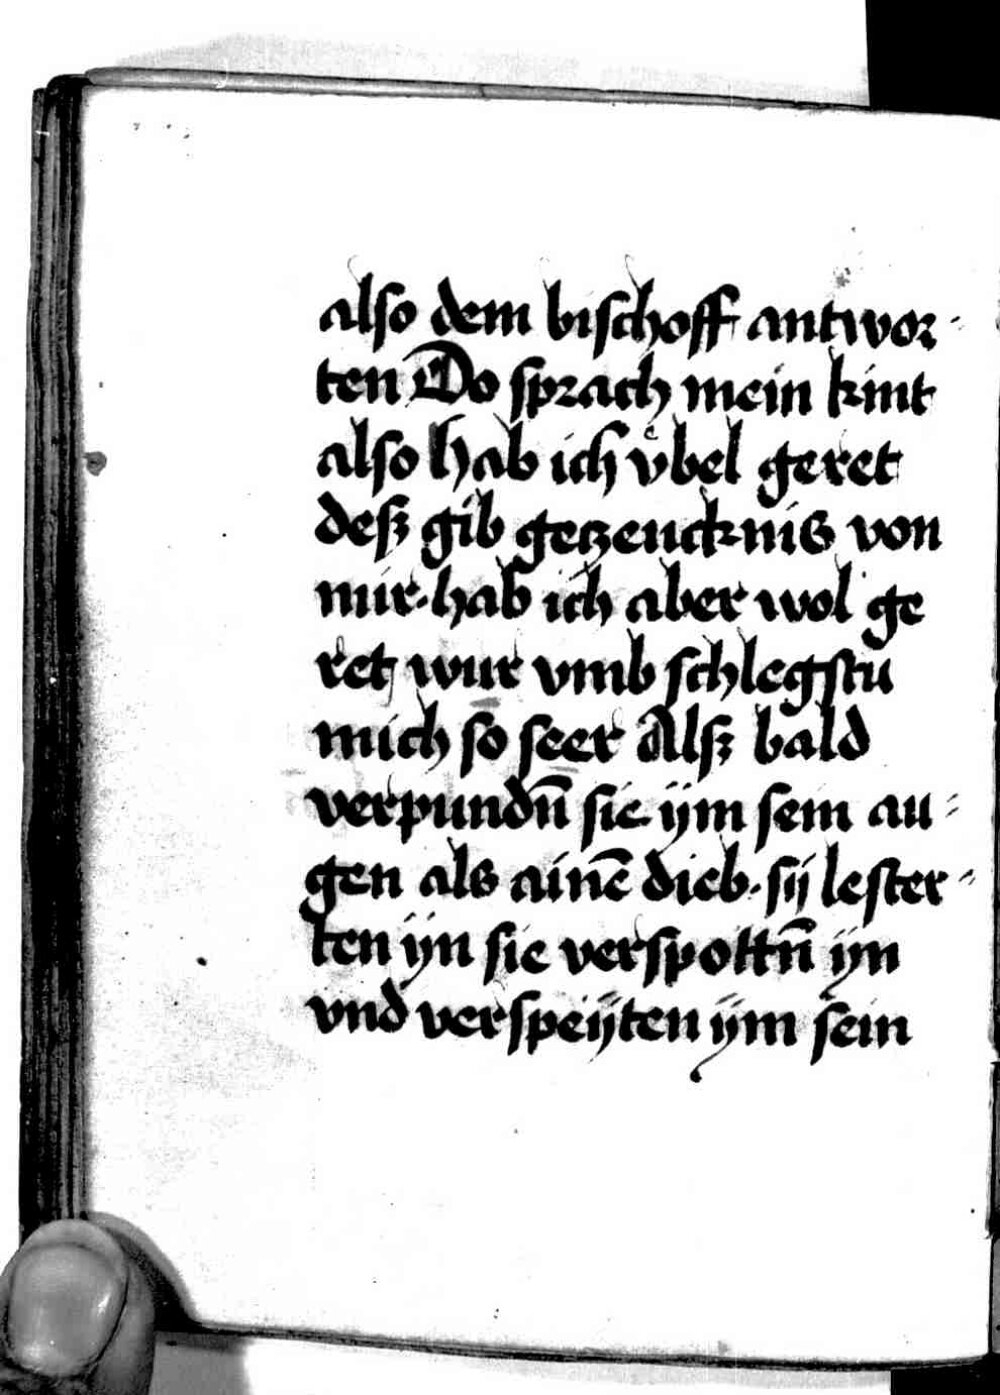 also dem bischoff antwor-
ten Do sprach mein kint
also hab ich vͤbel geret
desz gib getzeucknis von
mir. hab ich aber wol ge
ret wur vmb schlegstu
mich so seer Alsz bald
verpundn̄ sie ÿm sein au-
gen als ainē dieb. sij lester-
ten ÿn sie verspottn̄ ÿn
vnd verspeÿten ÿm sein